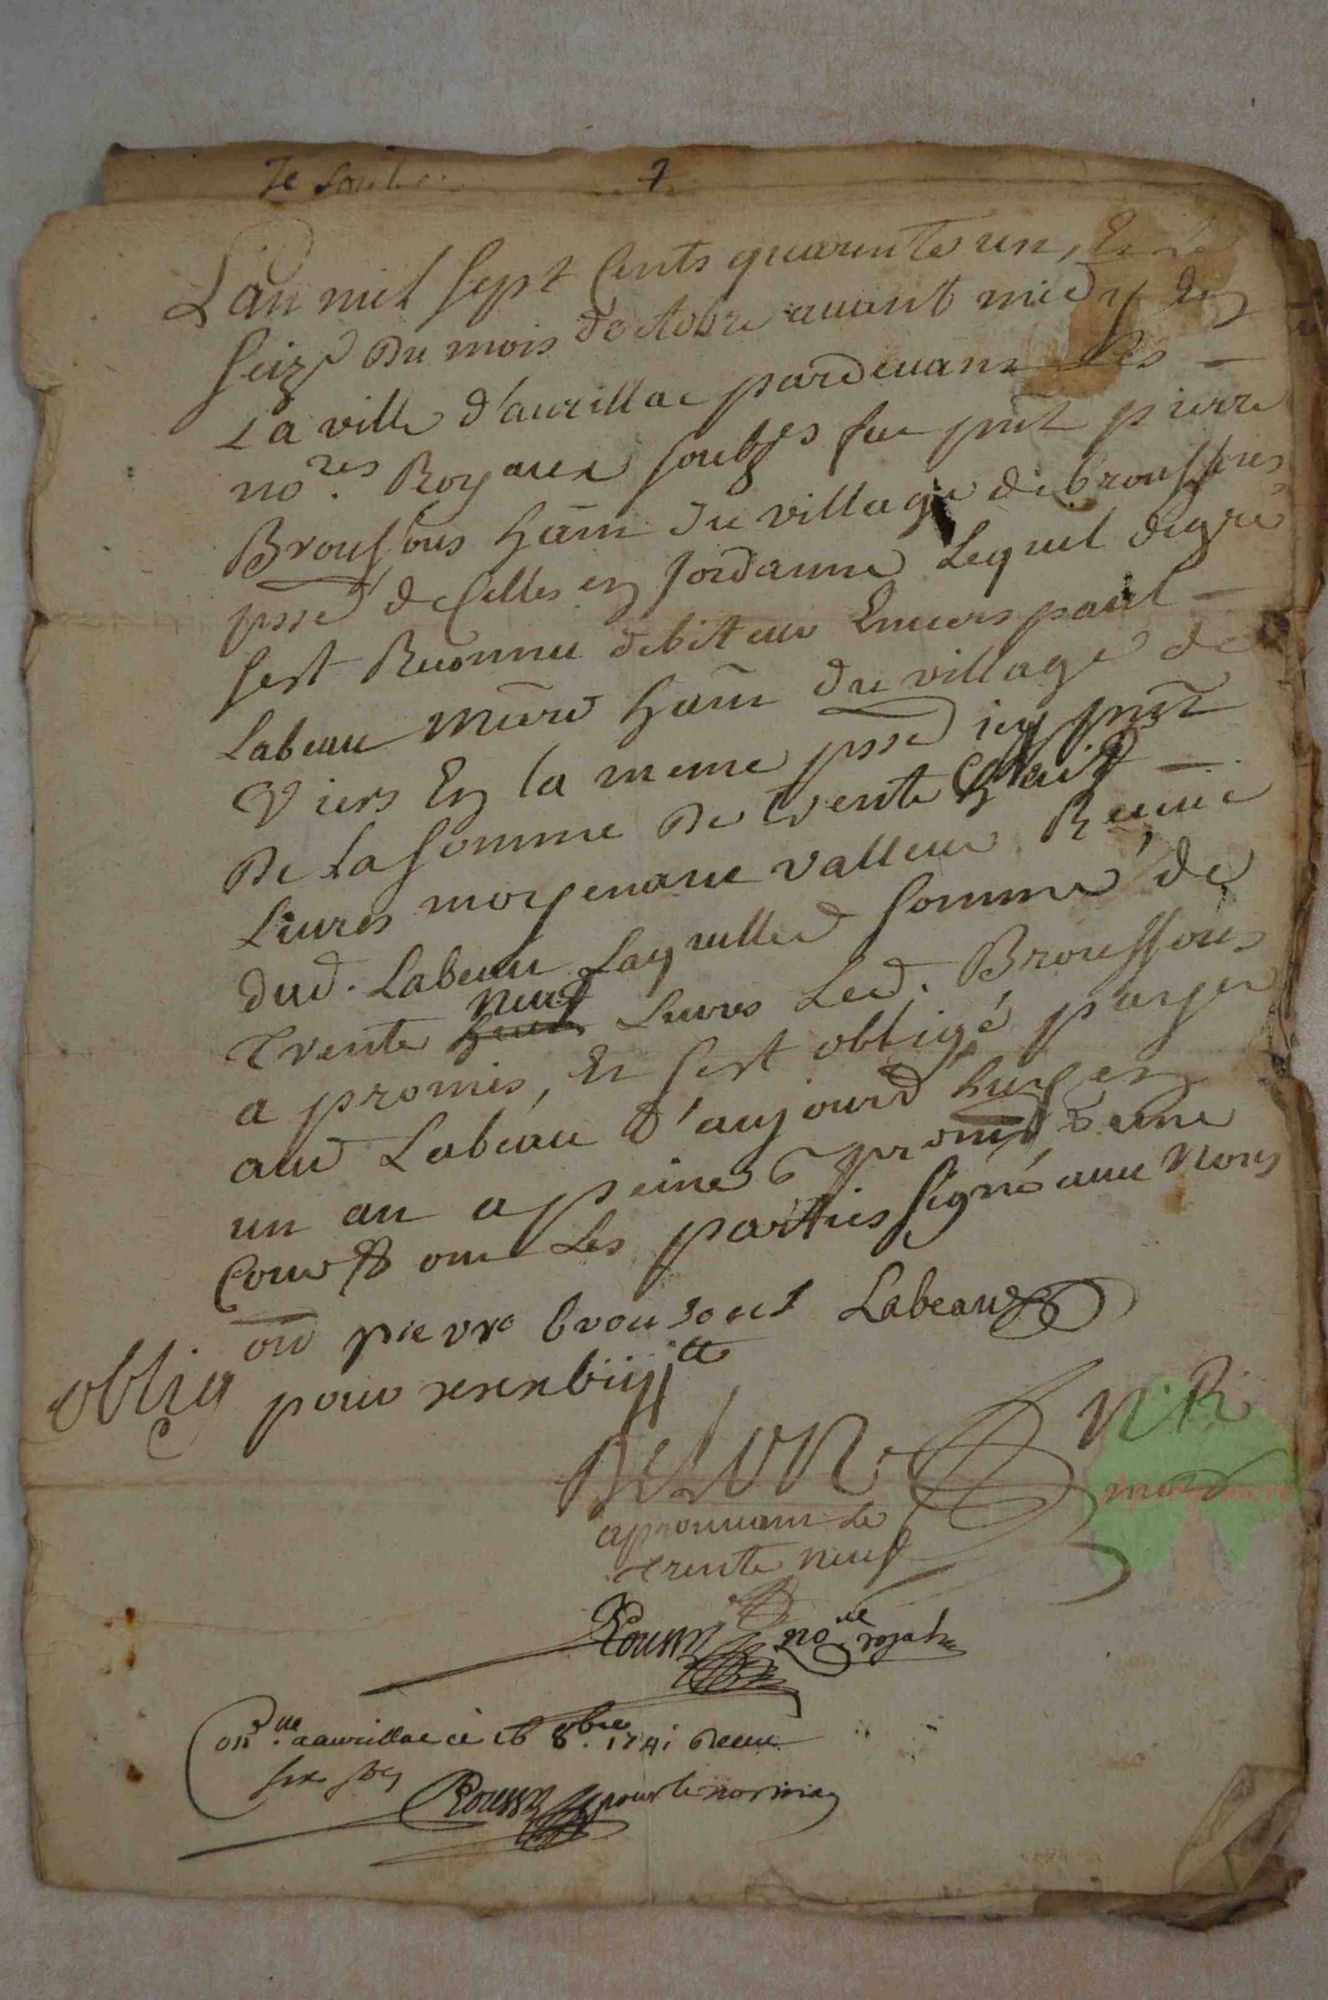 7
L'an mil sept cents quarente un, Et le
seize du mois d'octobre avant midy En
La ville d'aurillac pardevant Les
no.res Royaux soubz.es fut pnt pierre
Broussous ham du village de broussous
psse de Celles en Jordanne Lequel degré
sest Reconnu debiteur Envers paul
Labeau ham du village de
Viers En la meme psse icy pnt
De la somme De trente
Livres moyenant valleur Receue
dud. Labeau Laquelle somme de
Trente neuf huit Livres Led. Broussous
a promis, Et sest obligé payer
aud Labeau d'aujourd huy en
un an a peine &
Cour & ont Les parties signé avec Nous
pierre brousous Labeau
oblig pour xxxviiij lt
DELON N. R.
aprouvant Le
Trente neuf
no.re royal
Con.lle a aurillac ce 16 8.bre 1741 Receu
six sols
pour le